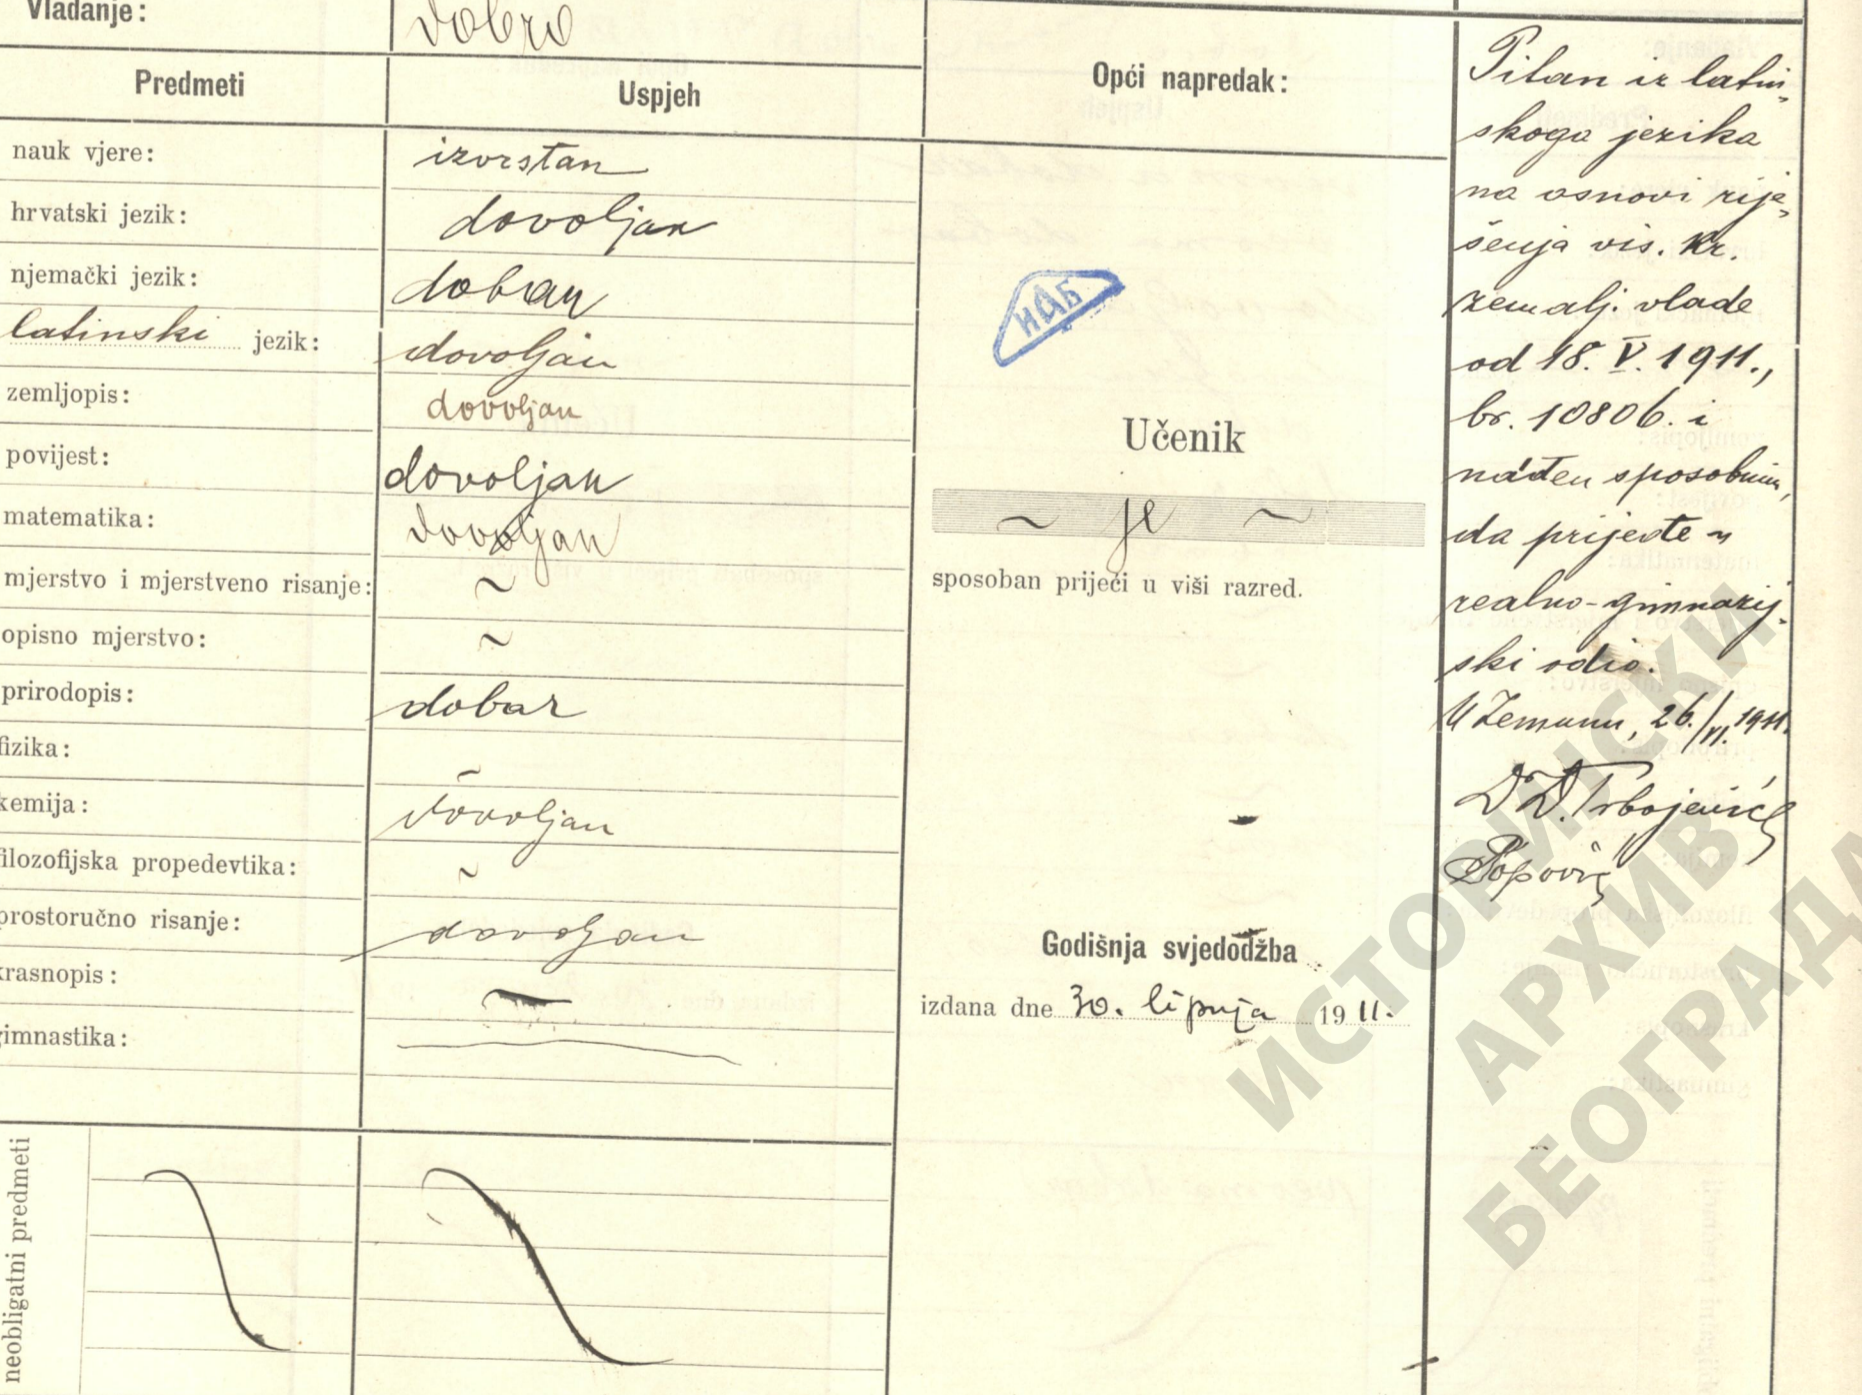 Vladanje: dobro
Predmeti Uspjeh Opći napredak:
nauk vjere: izvrstan
hrvatski jezik: dovoljan
njemački jezik: dobar
latinski jezik: dovoljan
zemljopis: dovoljan
povijest: dovoljan
matematika: dovoljan
mjerstvo i mjerstveno risanje: ~
opisno mjerstvo: ~
prirodopis: dobar
fizika: ~
kemija: dovoljan
filozofijska propedevtika: ~
prostoručno risanje: dovoljan
krasnopis: ~
gimnastika:
neobligatni predmeti
НАБ
Učenik
~ je ~
sposoban prijeći u viši razred.
Godišnja svjedodžba
izdana dne 30. lipnja 1911.
Pitan iz latin-
skoga jezika
na osnovi rije-
šenja vis. kr.
zemalj. vlade
od 18. V. 1911.,
br. 10806. i
nađen sposobnim,
da prijeđe u
realno-gimnazij-
ski odio.
U Zemunu, 26./VI. 1911.
D D. Trbojević
Popović
ИСТОРИЈСКИ
АРХИВ
БЕОГРАДА